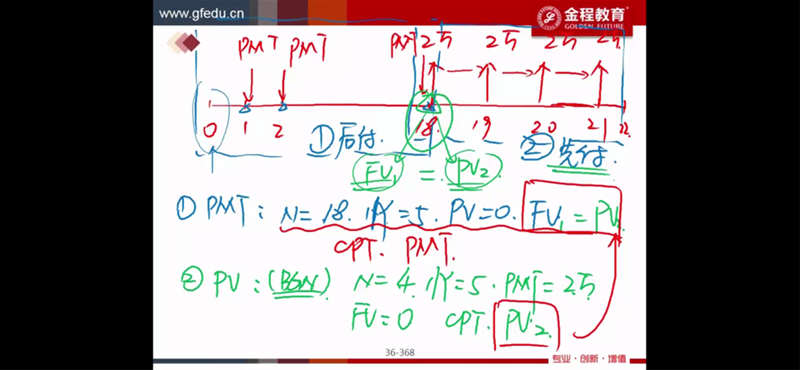 www.gfedu.cn
金程教育
GOLDEN FUTURE
PMT PMT PMT 2万 2万 2万 2万
0 1 2 18 19 20 21 22
①后付 ②先付
FV1 = PV2
① PMT: N=18. I/Y=5. PV=0. FV1=PV2
CPT. PMT
② PV: (BGN) N=4. I/Y=5. PMT=2万
FV=0 CPT. PV2
36-368
专业·创新·增值